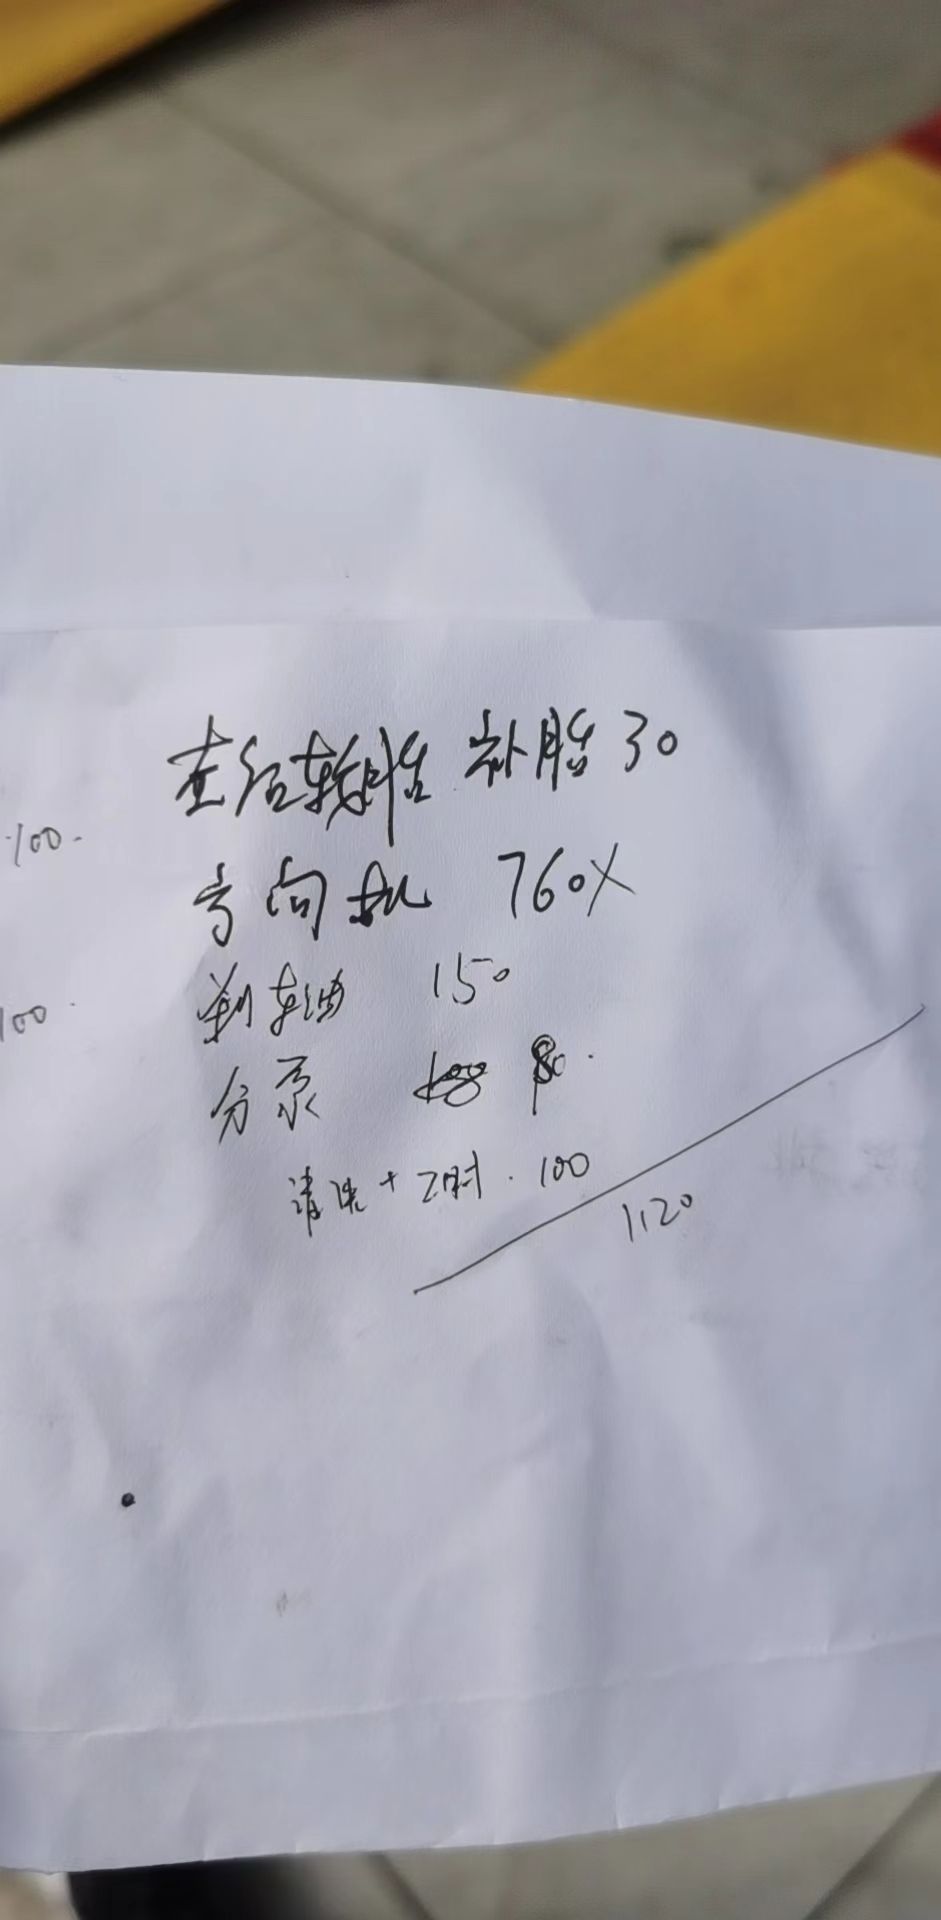 查后轮胎 补胎 30
·100·
方向机 760X
刹车油 150
100·
分泵 80·
清洗+工时·100
1120